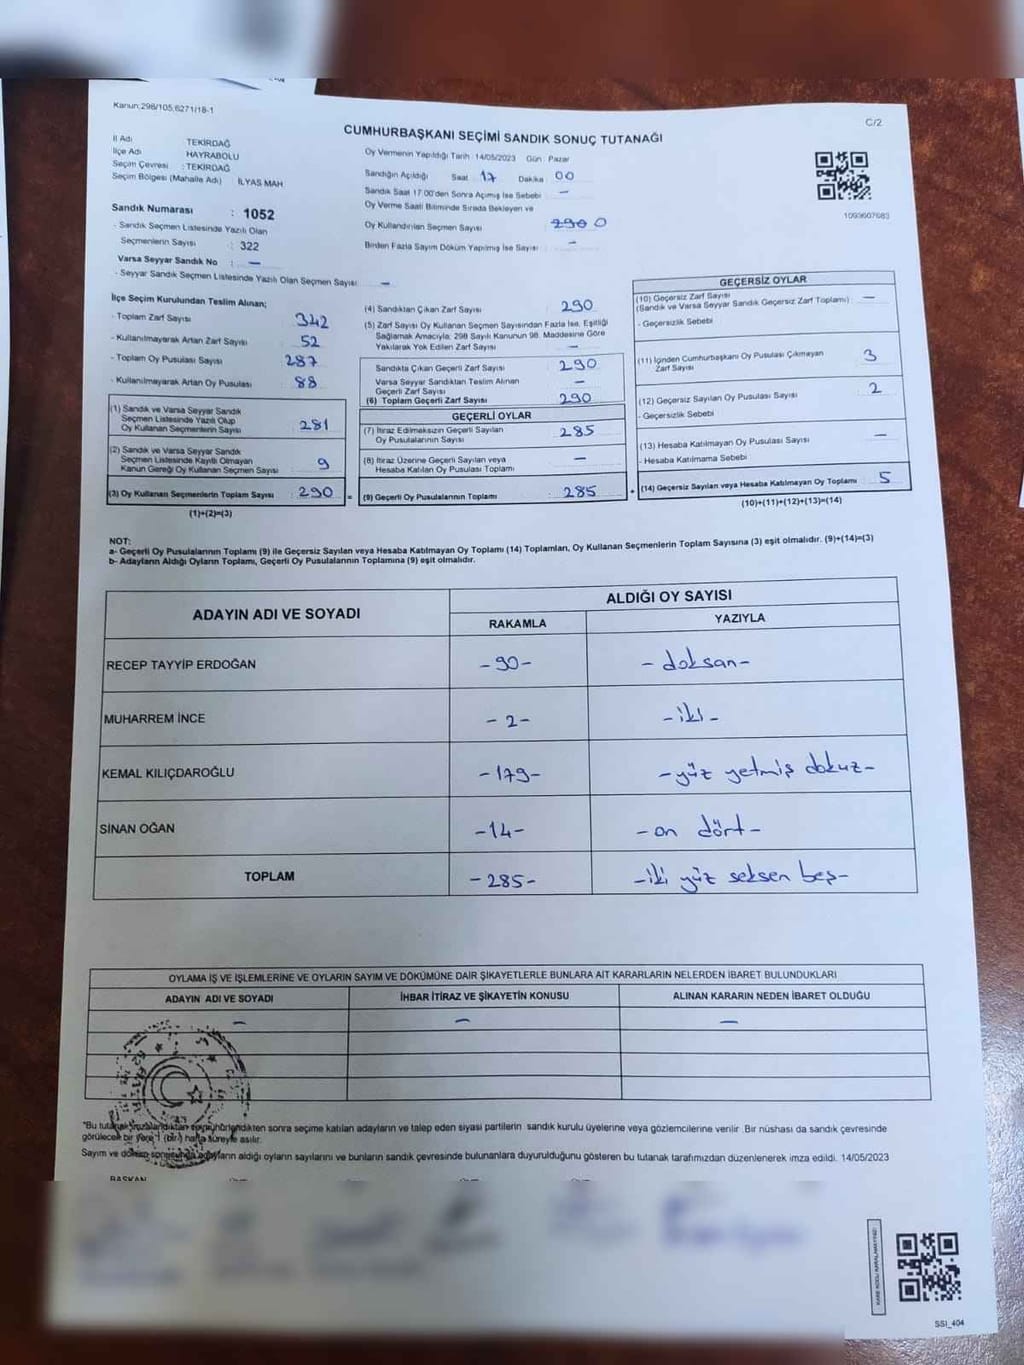 Kanun:298/105,6271/18-1
C/2
CUMHURBAŞKANI SEÇİMİ SANDIK SONUÇ TUTANAĞI
İl Adı TEKİRDAĞ
İlçe Adı HAYRABOLU
Seçim Çevresi : TEKİRDAĞ
Seçim Bölgesi (Mahalle Adı) İLYAS MAH
Sandık Numarası : 1052
- Sandık Seçmen Listesinde Yazılı Olan
Seçmenlerin Sayısı : 322
Varsa Seyyar Sandık No : –
- Seyyar Sandık Seçmen Listesinde Yazılı Olan Seçmen Sayısı: –
Oy Vermenin Yapıldığı Tarih :14/05/2023 Gün : Pazar
Sandığın Açıldığı Saat : 17 Dakika : 00
Sandık Saat 17:00'den Sonra Açılmış İse Sebebi : –
Oy Verme Saati Bitiminde Sırada Bekleyen ve
Oy Kullandırılan Seçmen Sayısı : 290 0
Birden Fazla Sayım Döküm Yapılmış İse Sayısı : –
1093607683
İlçe Seçim Kurulundan Teslim Alınan;
- Toplam Zarf Sayısı : 342
- Kullanılmayarak Artan Zarf Sayısı : 52
- Toplam Oy Pusulası Sayısı : 287
- Kullanılmayarak Artan Oy Pusulası : 88
(1) Sandık ve Varsa Seyyar Sandık
Seçmen Listesinde Yazılı Olup
Oy Kullanan Seçmenlerin Sayısı : 281
(2) Sandık ve Varsa Seyyar Sandık
Seçmen Listesinde Kayıtlı Olmayan
Kanun Gereği Oy Kullanan Seçmen Sayısı : 9
(3) Oy Kullanan Seçmenlerin Toplam Sayısı : 290 =
(1)+(2)=(3)
(4) Sandıktan Çıkan Zarf Sayısı : 290
(5) Zarf Sayısı Oy Kullanan Seçmen Sayısından Fazla İse, Eşitliği
Sağlamak Amacıyla, 298 Sayılı Kanunun 98. Maddesine Göre
Yakılarak Yok Edilen Zarf Sayısı : –
Sandıkta Çıkan Geçerli Zarf Sayısı : 290
Varsa Seyyar Sandıktan Teslim Alınan
Geçerli Zarf Sayısı : –
(6) Toplam Geçerli Zarf Sayısı : 290
GEÇERLİ OYLAR
(7) İtiraz Edilmeksizin Geçerli Sayılan
Oy Pusulalarının Sayısı : 285
(8) İtiraz Üzerine Geçerli Sayılan veya
Hesaba Katılan Oy Pusulası Toplamı : –
(9) Geçerli Oy Pusulalarının Toplamı : 285 +
GEÇERSİZ OYLAR
(10) Geçersiz Zarf Sayısı
(Sandık ve Varsa Seyyar Sandık Geçersiz Zarf Toplamı) : –
- Geçersizlik Sebebi
(11) İçinden Cumhurbaşkanı Oy Pusulası Çıkmayan
Zarf Sayısı : 3
(12) Geçersiz Sayılan Oy Pusulası Sayısı : 2
- Geçersizlik Sebebi
(13) Hesaba Katılmayan Oy Pusulası Sayısı : –
- Hesaba Katılmama Sebebi
(14) Geçersiz Sayılan veya Hesaba Katılmayan Oy Toplamı : 5
(10)+(11)+(12)+(13)=(14)
NOT:
a- Geçerli Oy Pusulalarının Toplamı (9) ile Geçersiz Sayılan veya Hesaba Katılmayan Oy Toplamı (14) Toplamları, Oy Kullanan Seçmenlerin Toplam Sayısına (3) eşit olmalıdır. (9)+(14)=(3)
b- Adayların Aldığı Oyların Toplamı, Geçerli Oy Pusulalarının Toplamına (9) eşit olmalıdır.
ADAYIN ADI VE SOYADI
ALDIĞI OY SAYISI
RAKAMLA YAZIYLA
RECEP TAYYİP ERDOĞAN -90- -doksan-
MUHARREM İNCE -2- -iki-
KEMAL KILIÇDAROĞLU -179- -yüz yetmiş dokuz-
SİNAN OĞAN -14- -on dört-
TOPLAM -285- -iki yüz seksen beş-
OYLAMA İŞ VE İŞLEMLERİNE VE OYLARIN SAYIM VE DÖKÜMÜNE DAİR ŞİKAYETLERLE BUNLARA AİT KARARLARIN NELERDEN İBARET BULUNDUKLARI
ADAYIN ADI VE SOYADI İHBAR İTİRAZ VE ŞİKAYETİN KONUSU ALINAN KARARIN NEDEN İBARET OLDUĞU
– – –
*Bu tutanak imzalandıktan ve mühürlendikten sonra seçime katılan adayların ve talep eden siyasi partilerin sandık kurulu üyelerine veya gözlemcilerine verilir .Bir nüshası da sandık çevresinde
görülecek bir yere 1 (bir) hafta süreyle asılır.
Sayım ve döküm sonrasında adayların aldığı oyların sayılarını ve bunların sandık çevresinde bulunanlara duyurulduğunu gösteren bu tutanak tarafımızdan düzenlenerek imza edildi. 14/05/2023
BAŞKAN
KARE KODU KARALAMAYINIZ!
SSI_404